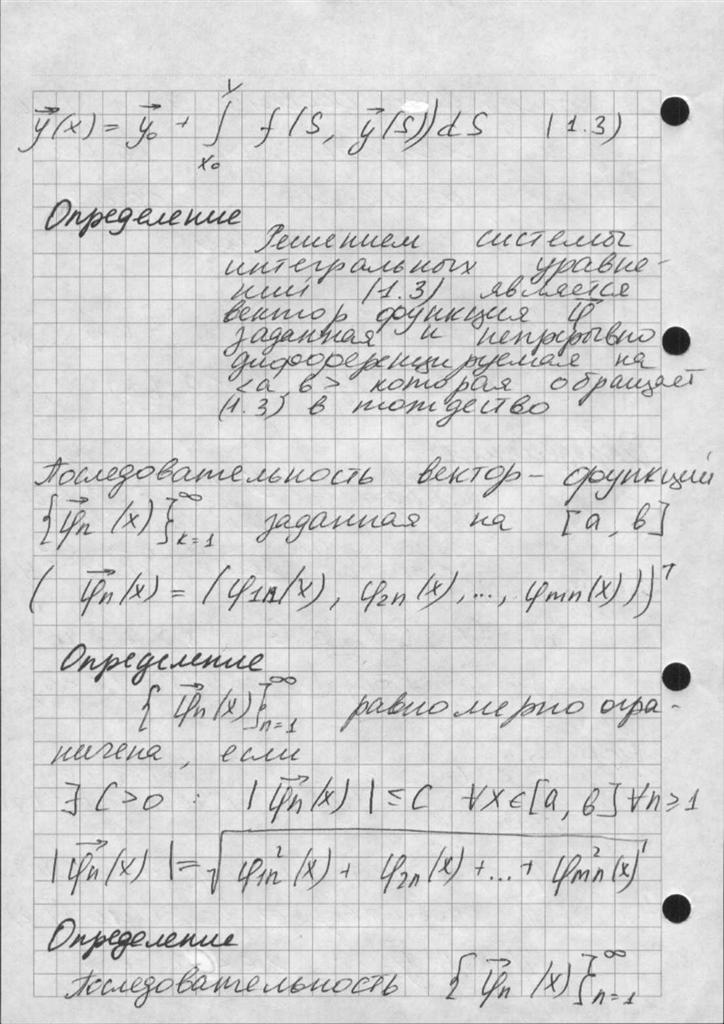 y⃗(x) = y⃗₀ + ∫ₓ₀ˣ f(S, y⃗(S)) dS (1.3)
Определение
Решением системы
интегральных уравне-
ний (1.3) является
вектор функция φ⃗
заданная и непрерывно
дифференцируемая на
<a, b> которая обращает
(1.3) в тождество
Последовательность вектор-функций
{φ⃗n (x)}∞k=1 заданная на [a, b]
(φ⃗n(x) = (φ1n(x), φ2n(x), ..., φmn(x)))ᵀ
Определение
{φ⃗n(x)}∞n=1 равномерно огра-
ничена, если
∃ C>0 : |φ⃗n(x)| ≤ C ∀x∈[a, b] ∀n≥1
|φ⃗n(x)| = √φ1n²(x) + φ2n(x) + ... + φmn²(x)
Определение
Последовательность {φ⃗n (x)}∞n=1